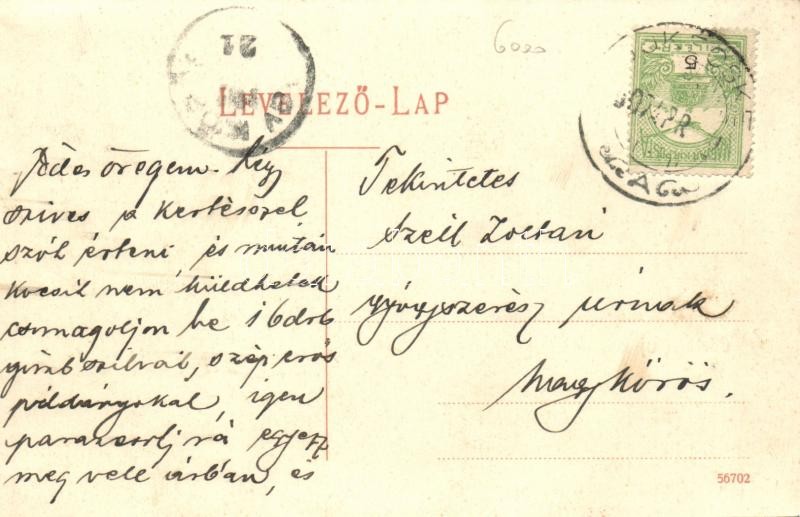 21
6020
LEVELEZŐ-LAP
5
Édes öregem. Légy
szives a kertészszel
szót érteni és miután
kocsit nem küldhetek
csomagoljon be 16 drb
gömbszilvát, szép erős
példányokat, igen
parazsolj rá egyezz
meg vele árban, és
Tekintetes
Széll Zoltán
gyógyszerész úrnak
Nagykörös.
56702